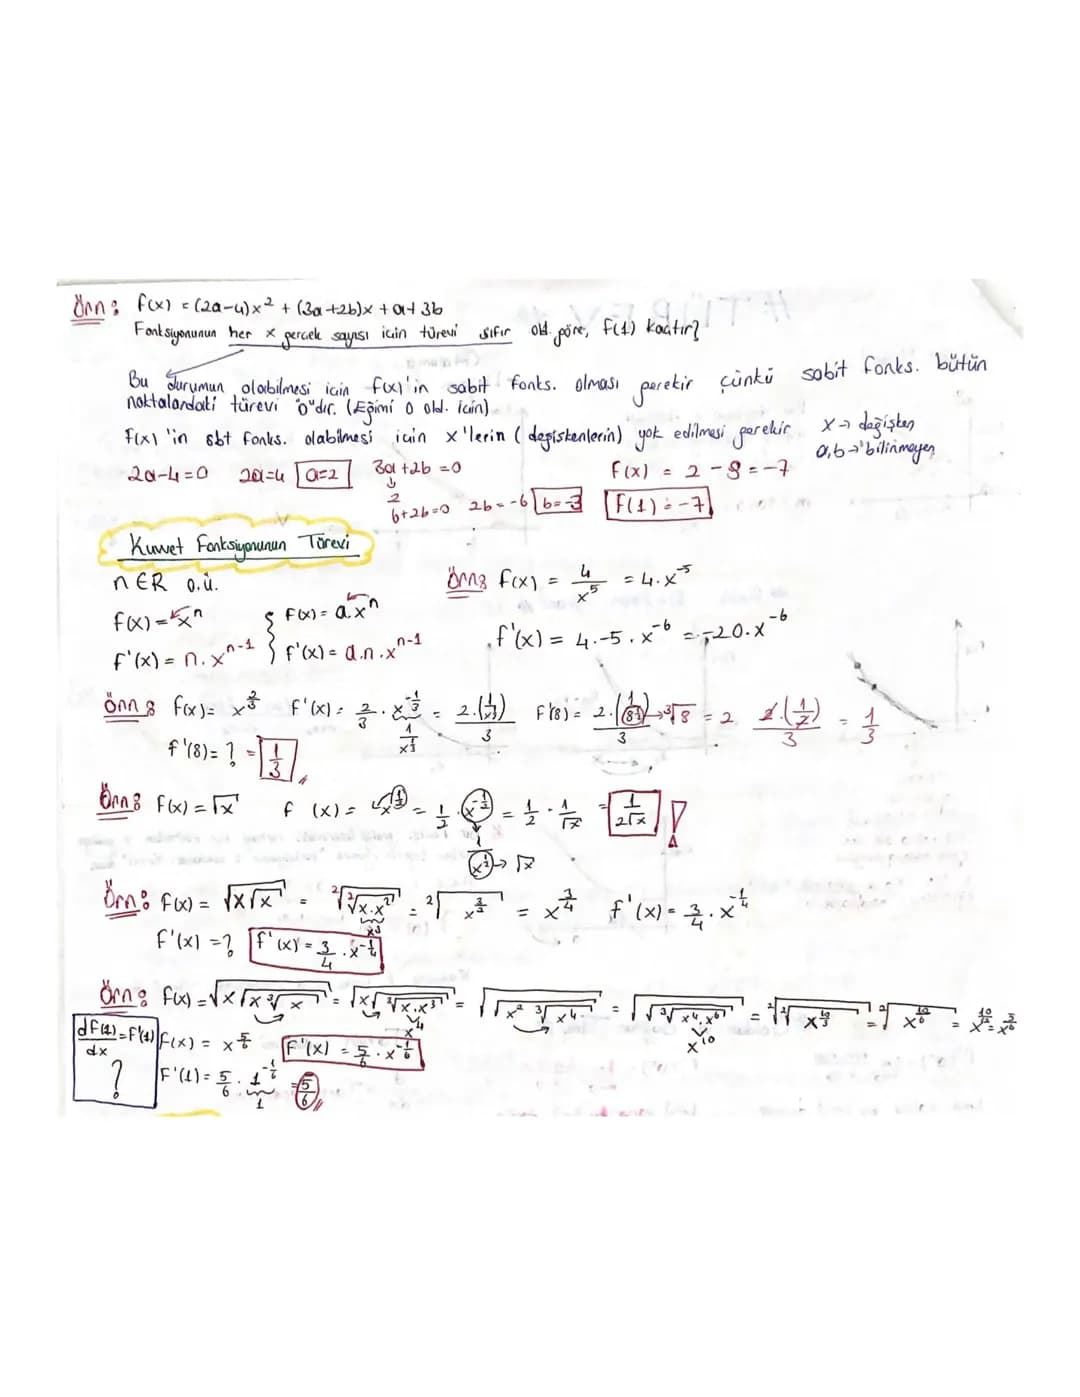 Örn: f(x) = (2a-4)x² + (3a+2b)x + a+3b
Fonksiyonunun her x gerçek sayısı için türevi sıfır old. göre, f(1) kaçtır?
Bu durumun olabilmesi için f(x)'in sabit fonks. olması gerekir çünkü sabit fonks. bütün
noktalardaki türevi "0"dır. (Eğimi 0 old. için)
f(x)'in sbt fonks. olabilmesi için x'lerin (değişkenlerin) yok edilmesi gerekir
x→ değişken
a,b→ bilinmeyen
2a-4=0 2a=4 a=2 3a+2b=0
2
6+2b=0 2b=-6 b=-3
f(x) = 2-9=-7
f(1)=-7
Kuvvet Fonksiyonunun Türevi
n∈R o.ü.
f(x)=xⁿ
f'(x)=n.xⁿ⁻¹
f(x)=a.xⁿ
f'(x)=a.n.xⁿ⁻¹
Örn: f(x) = 4/x⁵ = 4.x⁻⁵
f'(x) = 4.-5.x⁻⁶ = -20.x⁻⁶
Örn: f(x)= x^(2/3) f'(x)= 2/3 . x^(-1/3) = 2.(1/x^(1/3))/3 f'(8)= 2.(1/8^(1/3))/3 → ³√8 = 2 2.(1/2)/3 = 1/3
1/x^(1/3)
f'(8)=? = 1/3
Örn: f(x)=√x f (x)= x^(1/2) = 1/2 . x^(-1/2) = 1/2 . 1/√x = 1/2√x !
1/x^(1/2) → √x
Örn: f(x) = √x√x = ²√²√x.x² = ²√x^(3/2) = x^(3/4) f'(x) = 3/4 . x^(-1/4)
x³
f'(x) =? f'(x) = 3/4 . x^(-1/4)
Örn: f(x) = √x√x³√x = √x√³√x.x³ = √√x² ³√x⁴ = √√³√x⁴.x⁶ = ²√²√x^(10/3) = ²√x^(10/6) = x^(10/12) = x^(5/6)
x⁴
x¹⁰
df(1)/dx = f'(1) ?
f(x) = x^(5/6) f'(x) = 5/6 . x^(-1/6)
f'(1) = 5/6 . 1^(-1/6) = 5/6
1